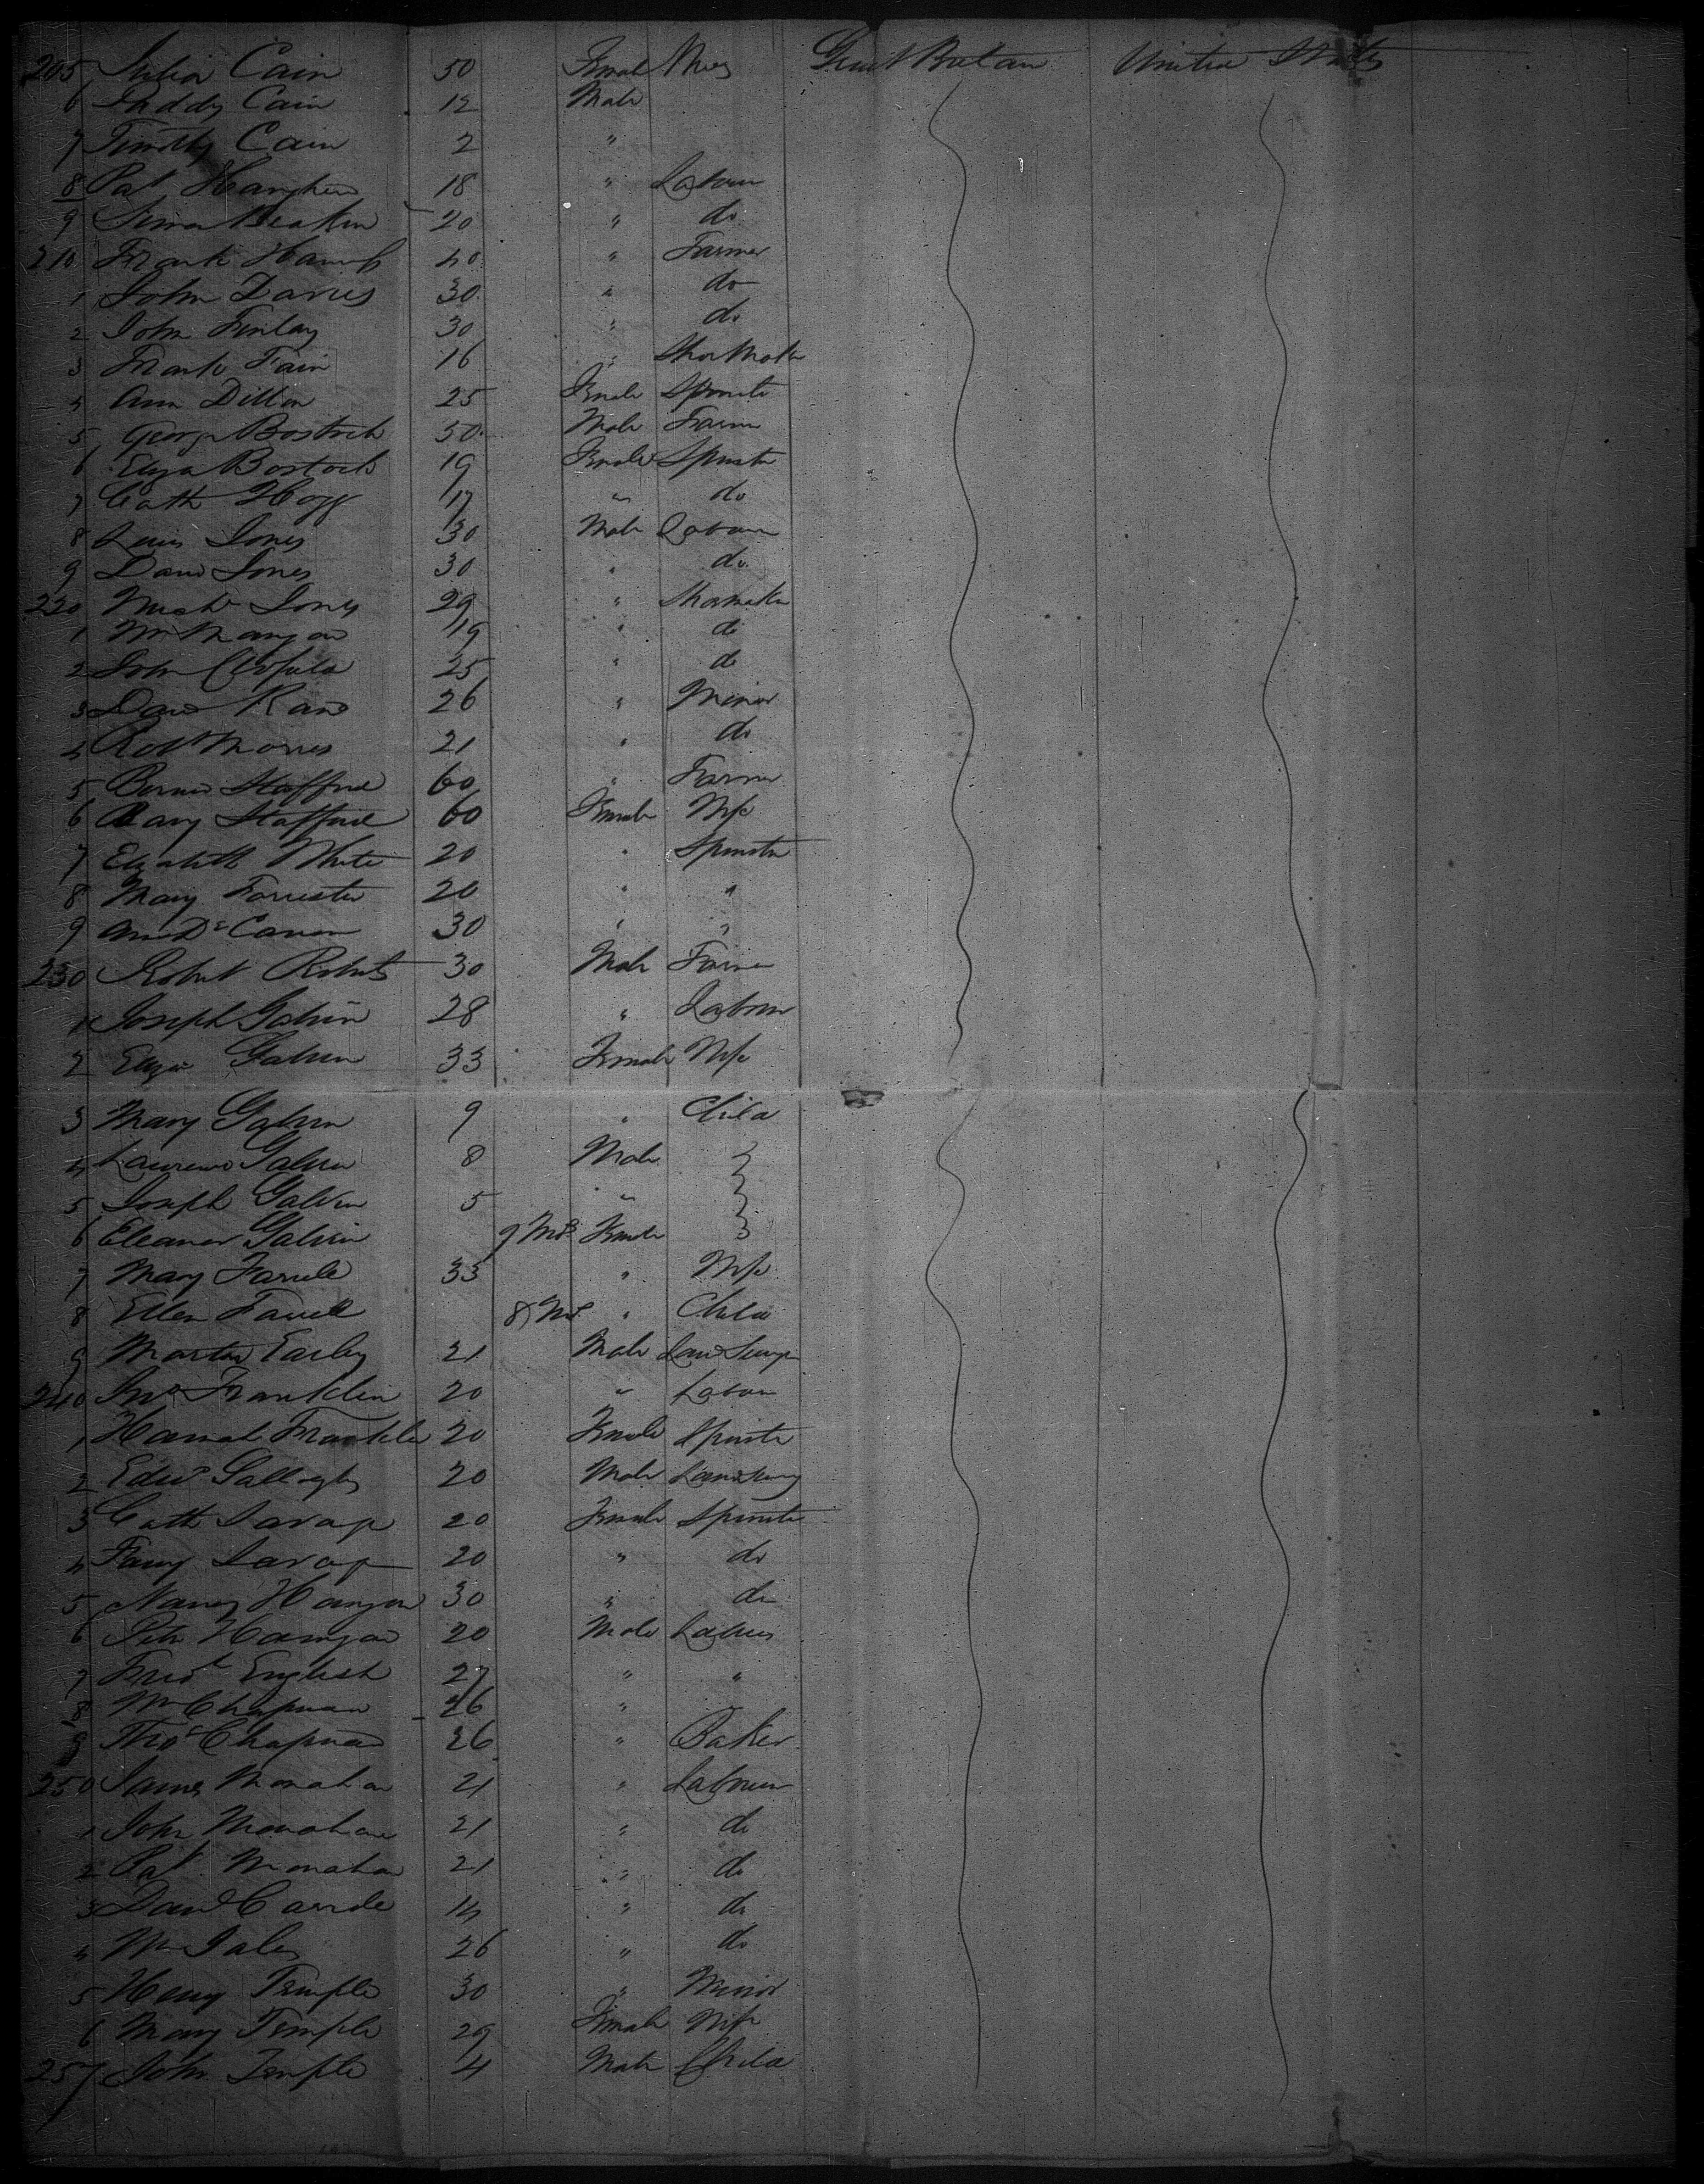 205 Julia Cain 50 Female Great Britain United States
6 Paddy Cain 12 Male
7 Timothy Cain 2 "
8 Pat 18 " Labour
9 20 " do
210 Frank 40 " Farmer
1 John Davies 30 " do
2 John Finlay 30 " do
3 Frank Fain 16 "
4 Ann Dillon 25 Female
5 George Bostock 50 Male Farm
6 Eliza Bostock 19 Female
7 Cath Hogg 17 " do
8 Lewis Jones 30 Male Labour
9 Davd Jones 30 " do
220 Jones 29 "
1 Wm Mangan 19 " do
2 John 25 " do
3 Davd Kane 26 " Minor
4 Robt Morris 21 " do
5 Stafford 60 " Farmer
6 Mary Stafford 60 Female Wife
7 Elizabeth White 20 " Spinster
8 Mary Forrester 20 " "
9 30 " "
230 Robert Roberts 30 Male Farmer
1 Joseph Galvin 28 " Labour
2 Eliza Galvin 33 Female Wife
3 Mary Galvin 9 " Child
4 Lawrence Galvin 8 Male
5 Joseph Galvin 5 "
6 Eleanor Galvin 9 Mos Female
7 Mary Farrell 33 " Wife
8 Ellen Farrell 8 Mos " Child
9 Martin Earley 21 Male
240 Jno Franklin 20 " Labour
1 Hannah Franklin 20 Female Spinster
2 Edwd Gallagher 20 Male
3 Cath Savage 20 Female Spinster
4 Fanny Savage 20 " do
5 Nancy Hangan 30 " do
6 Peter Hangan 20 Male
7 English 27 " "
8 Wm Chapman 26 "
9 Thos Chapman 26 " Baker
250 James Monahan 21 " Labour
1 John Monahan 21 " do
2 Pat Monahan 21 " do
3 Davd 14 " do
4 Wm 26 " do
5 Henry Temple 30 " Minor
6 Mary Temple 29 Female Wife
257 John Temple 4 Male Child